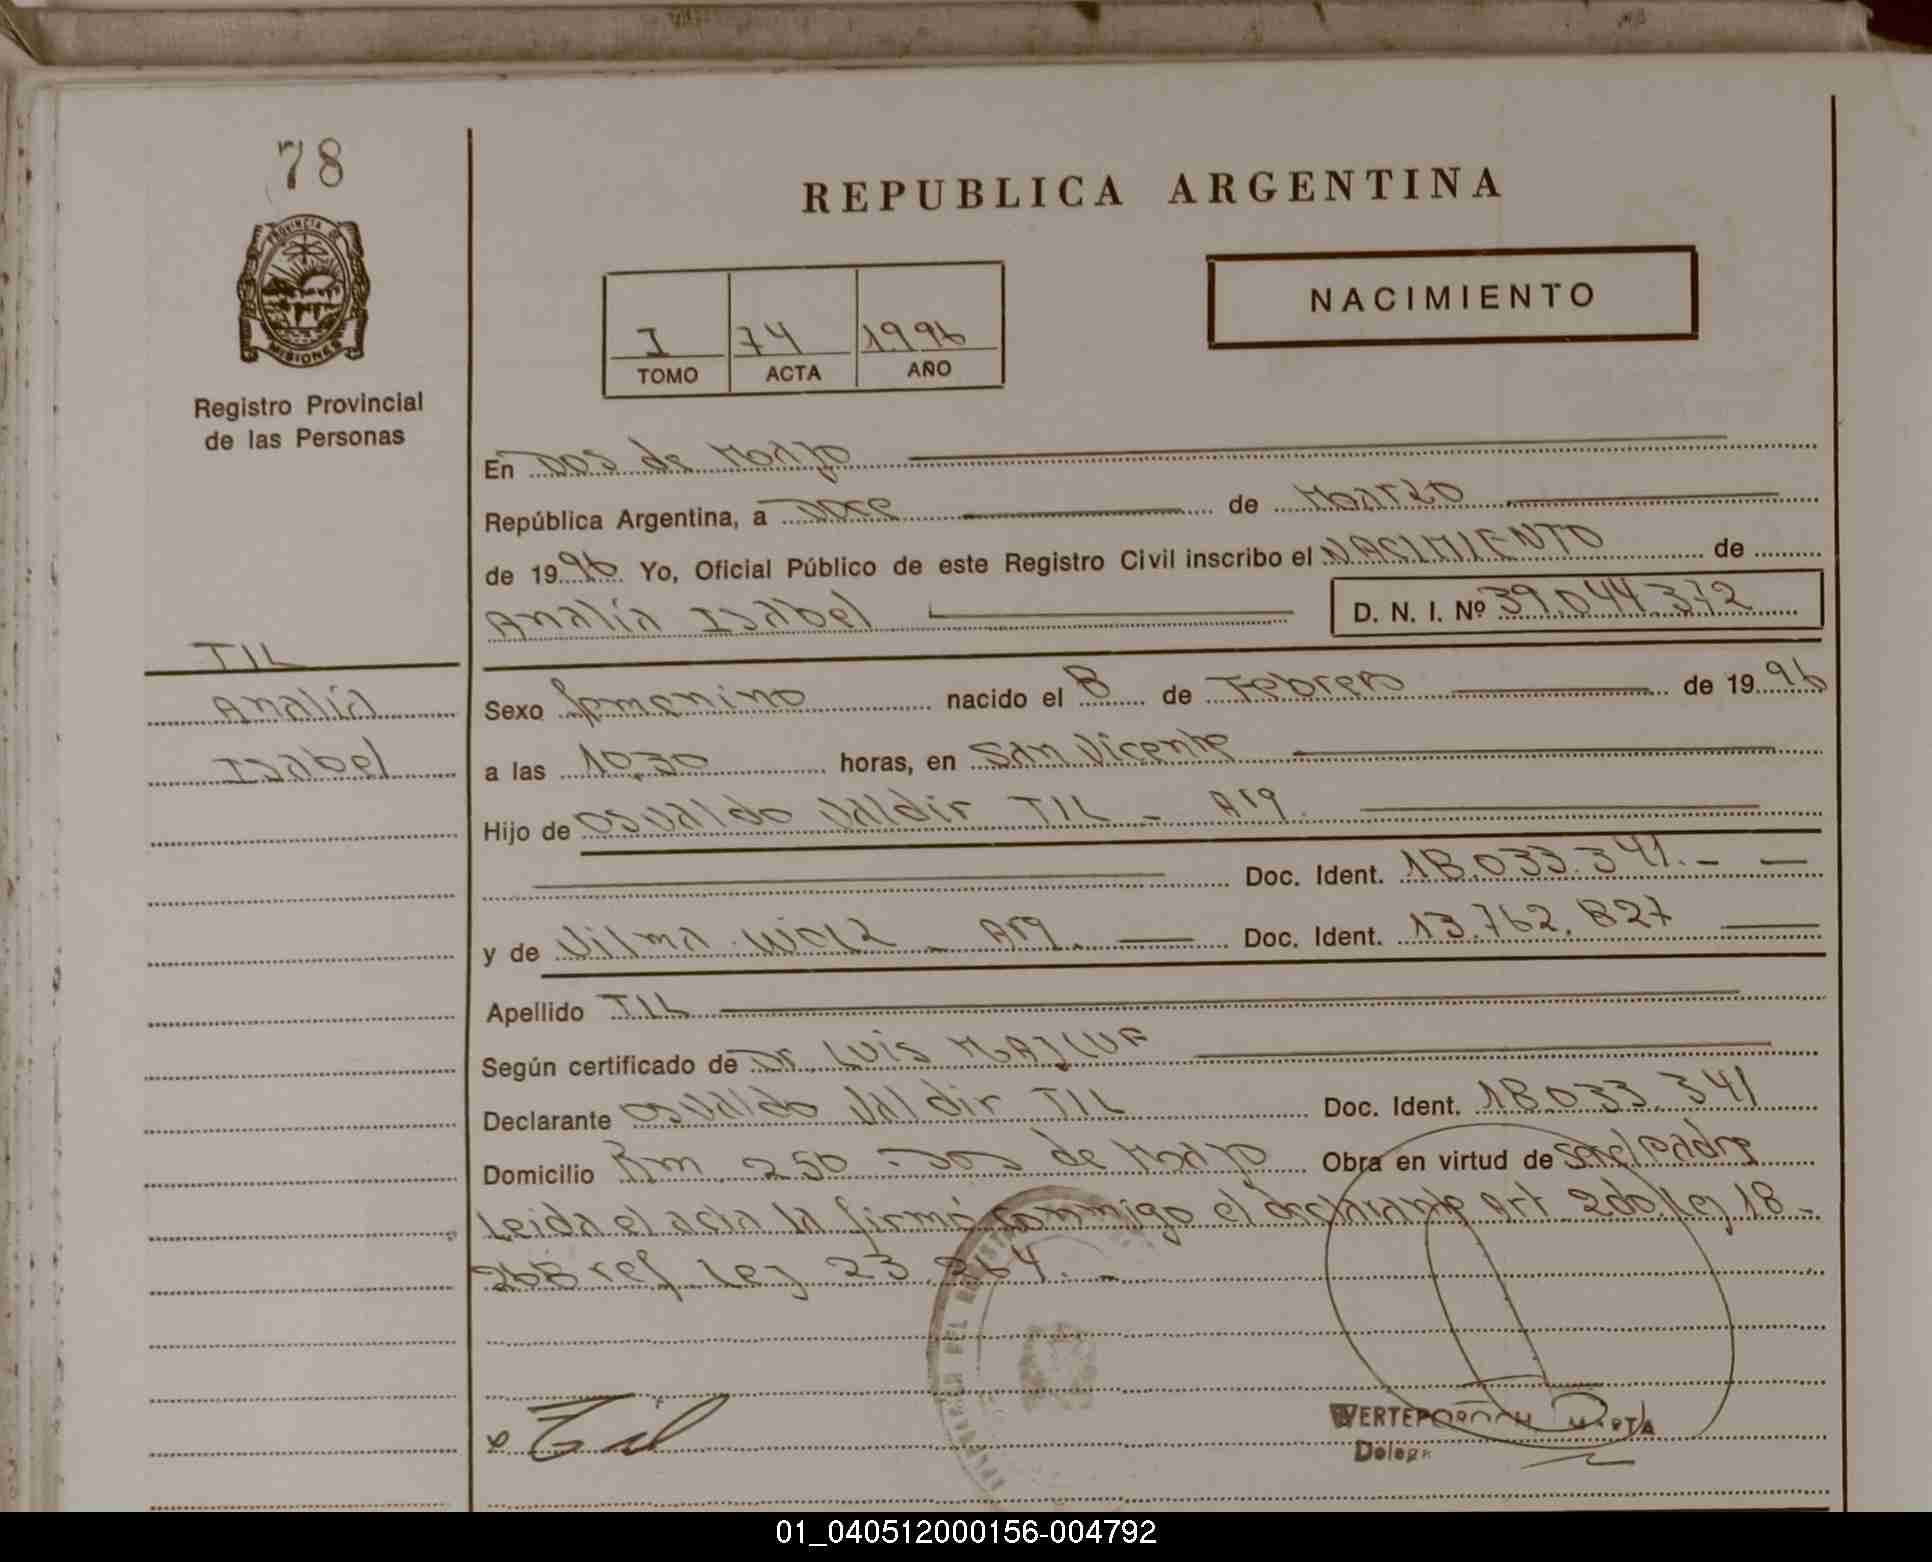 78
PROVINCIA DE
MISIONES
Registro Provincial
de las Personas
TIL
Analía
Isabel
REPUBLICA ARGENTINA
NACIMIENTO
I 74 1996
TOMO ACTA AÑO
En Dos de Mayo
República Argentina, a Doce de Marzo
de 1996 Yo, Oficial Público de este Registro Civil inscribo el NACIMIENTO de
Analía Isabel D. N. I. Nº 39.044.372
Sexo femenino nacido el 8 de Febrero de 1996
a las 10,30 horas, en San Vicente
Hijo de Osvaldo Valdir TIL - Arg.
Doc. Ident. 18.033.341.-
y de Vilma - Arg. Doc. Ident. 13.762.827
Apellido TIL
Según certificado de Dr. Luis
Declarante Osvaldo Valdir TIL Doc. Ident. 18.033.341
Domicilio Km 250 - Dos de Mayo Obra en virtud de ser el Padre
Leida el acta la firmó conmigo el declarante Art 2do Ley 18-
268 ref. Ley 23.264.-
Til
MARTA
01_040512000156-004792